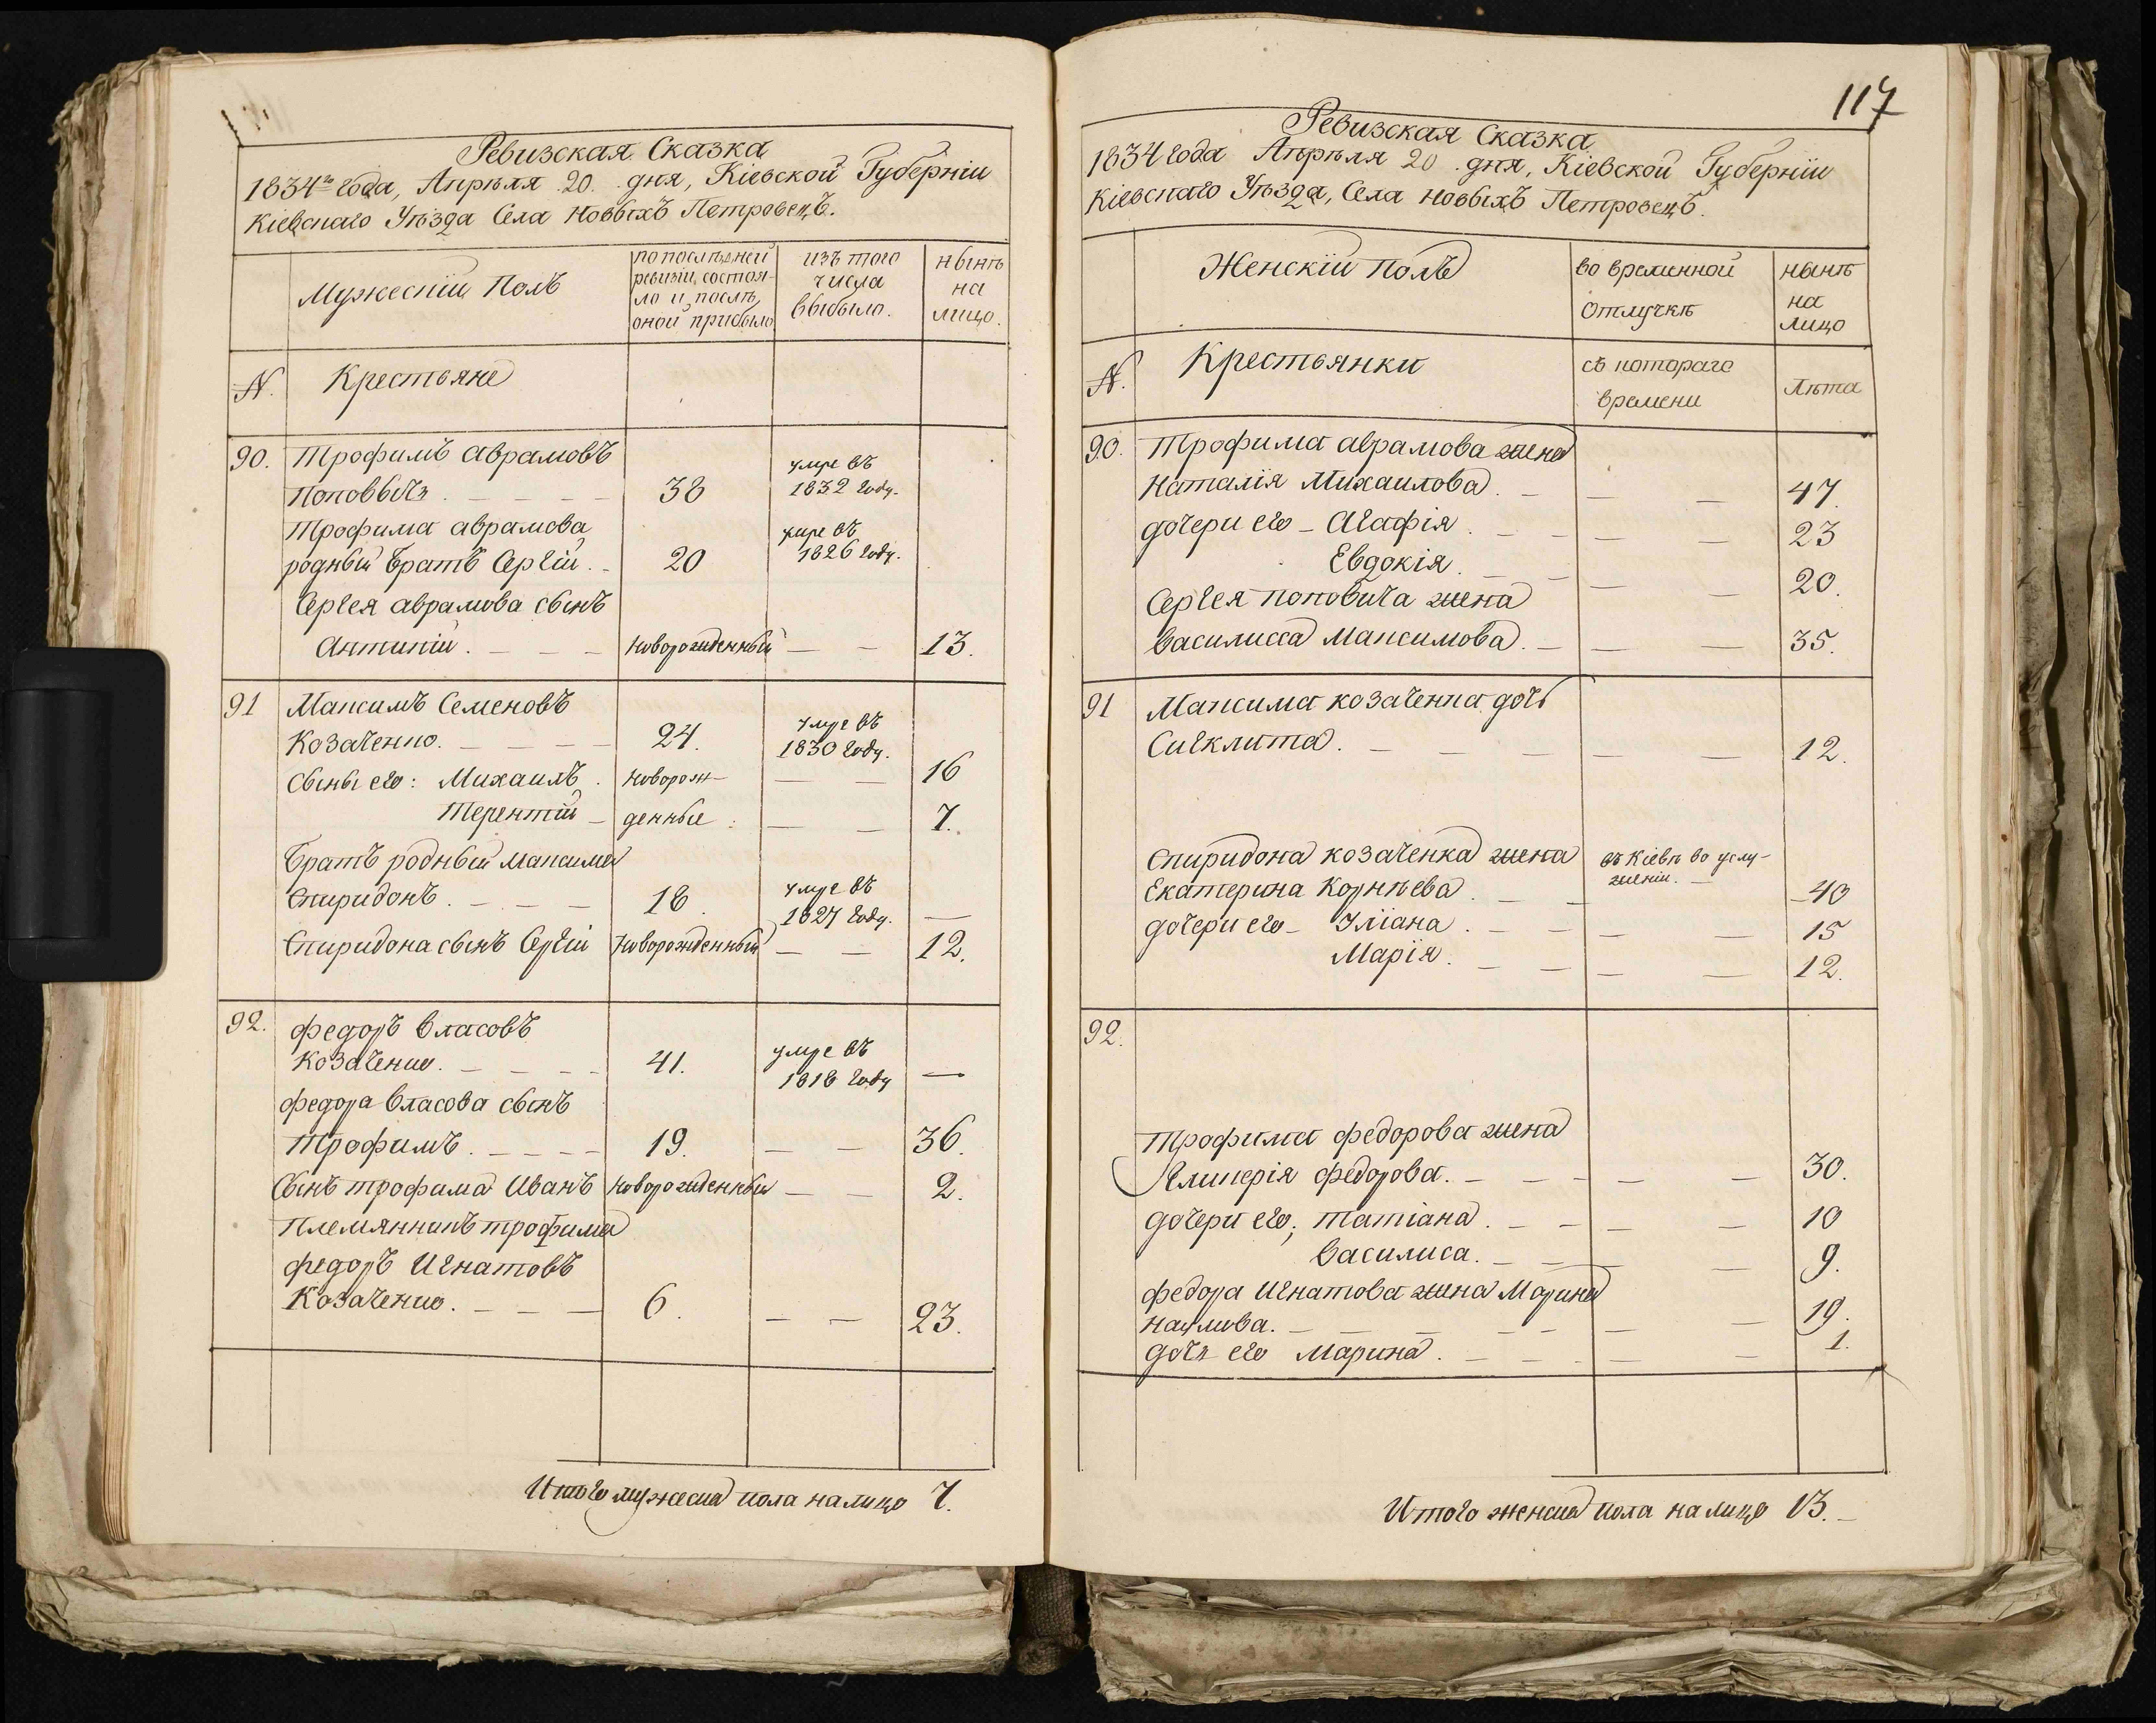 Ревизская Сказка
1834го года, Апрѣля 20. дня, Кіевской Губерніи
Кіевскаго Уѣзда Села Новыхъ Петровецъ.
Мужескій Полъ
по послѣдней
ревизіи состоя-
ло и послѣ
оной прибыло
изъ того
числа
выбыло.
нынѣ
на
лицо.
N.
Крестьяне
90.
Трофимъ Аврамовъ
Поповычъ. 38 умре въ
1832 году.
Трофима Аврамова
родный братъ Сергій. 20 умре въ
1826 году.
Сергея Аврамова сынъ
Антипій. Новорожденный 13.
91
Максимъ Семеновъ
Козаченко. 24. умре въ
1830 году.
Сыны его: Михаилъ. Новорож- 16
Терентій денные 7.
Братъ родный Максима
Спиридонъ. 18. умре въ
1827 году.
Спиридона сынъ Сергій Новорожденный 12.
92.
Федоръ Власовъ
Козаченко. 41. умре въ
1818 году
Федора Власова сынъ
Трофимъ. 19. 36.
Сынъ Трофима Иванъ Новорожденный 2.
Племянникъ Трофима
Федоръ Игнатовъ
Козаченко. 6. 23.
Итого мужеска пола на лицо 7.
117
Ревизская Сказка
1834 года Апрѣля 20 дня, Кіевской Губерніи
Кіевскаго Уѣзда, Села Новыхъ Петровецъ.
Женскій Полъ
во временной
отлучкѣ
нынѣ
на
лицо
N.
Крестьянки
съ котораго
времени
Лѣта
90.
Трофима Аврамова жена
Наталія Михаилова. 47.
дочери его - Агафія. 23
Евдокія. 20.
Сергея Поповича жена
Василисса Максимова. 35.
91
Максима Козаченка дочь
Сигклита. 12.
Спиридона Козаченка жена въ Кіевѣ во услу-
жении.
Екатерина Корнѣева. 40
дочери его - Уліана. 15
Марія. 12.
92.
Трофима Федорова жена
Гликерія Федорова. 30.
дочери его; Татіана. 10
Василиса. 9.
Федора Игнатова жена Марина
Наумова. 19.
дочь его Марина. 1.
Итого женска пола на лицо 13.